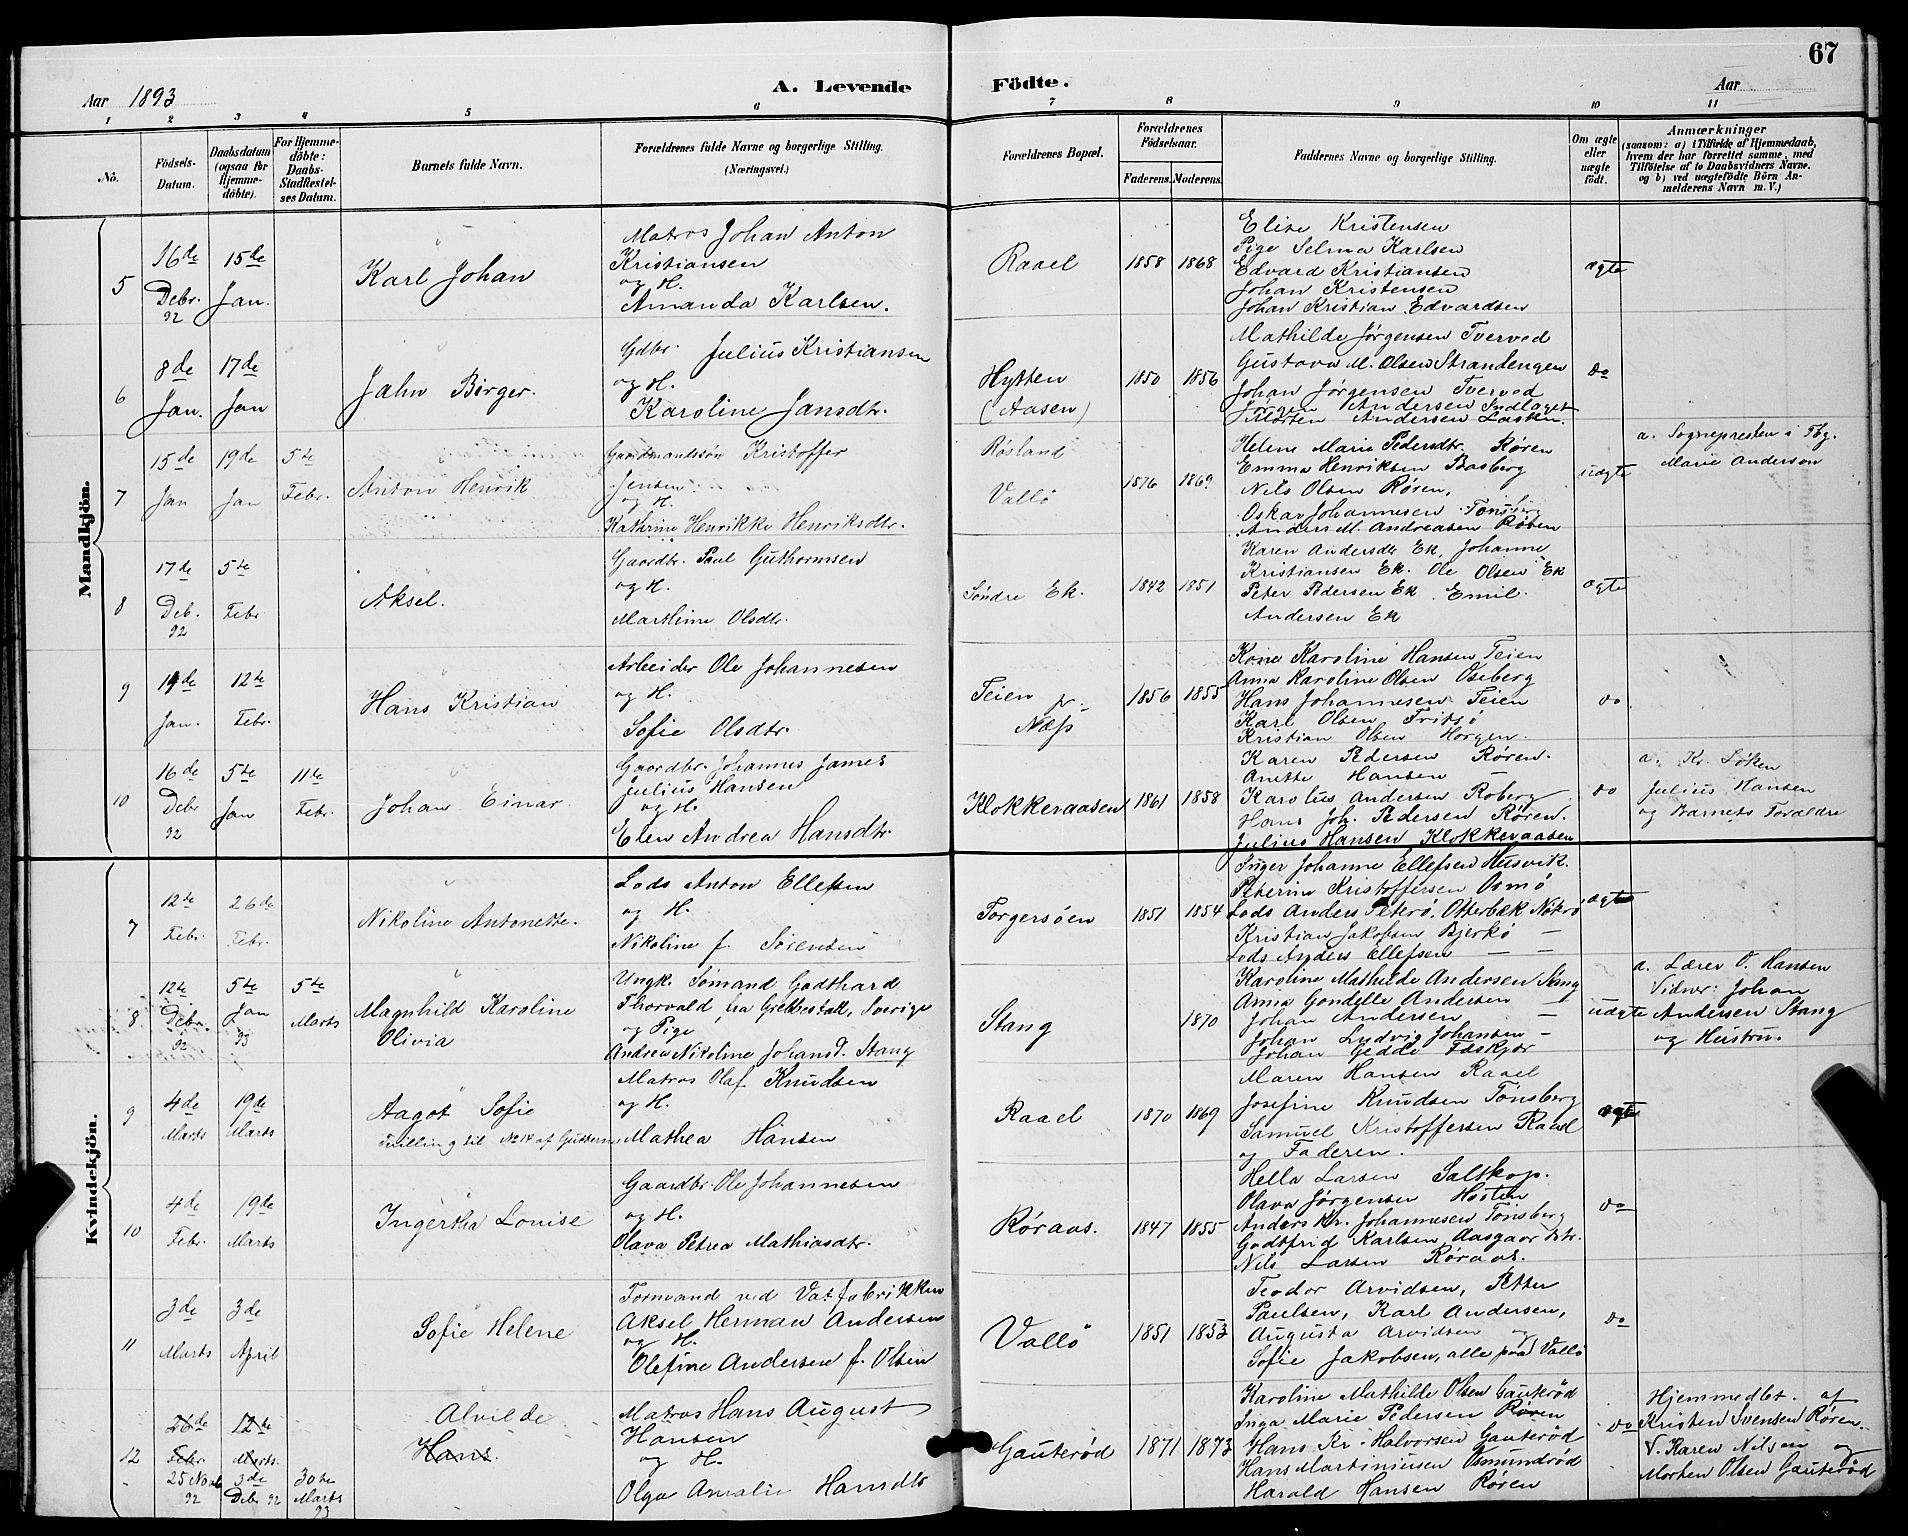 67
Aar 1893
A. Levende
Födte.
Aar
1 2 3 4 5 6 7 8 9 10 11
No.
Födsels-Datum.
Daabsdatum (ogsaa for Hjemmedöbte).
For Hjemmedöbte: Daabs-Stadfestelses Datum.
Barnets fulde Navn.
Forældrenes fulde Navne og borgerlige Stilling. (Næringsvei.)
Forældrenes Bopæl.
Forældrenes Födselsaar.
Faderens. Moderens.
Faddernes Navne og borgerlige Stilling.
Om ægte eller uægte født.
Anmærkninger
(saasom: a) i Tilfælde af Hjemmedaab, hvem der har forrettet samme, med Tilföielse af to Daabsvidners Navne. og b) ved uægtefödte Börn Anmelderens Navn m. V.)
Mandkjön.
5
16de Debr. 92
15de Jan.
Karl Johan
Matros Johan Anton
Kristiansen
og H.
Amanda Karlsen.
Raael
1858 1868
Elise Kristensen
Pige Selma Karlsen
Edvard Kristiansen
Johan Kristensen
Johan Kristian Edvardsen
ægte
6
8de Jan.
17de Jan
Jahn Birger.
Gdbr. Julius Kristiansen
og H.
Karoline Jansdtr.
Hytten
(Aasen)
1850 1856
Mathilde Jørgensen Tverved
Gustava M. Olsen Strandengen
Johan Jørgensen Tverved
Jørgen Andersen Indlaget
Morten Andersen Lasken
do
7
15de Jan
19de Jan
5te Febr.
Anton Henrik
Gaardmandssøn Kristoffer
Jensen
og H.
Kathrine Henrikke Henriksdtr.
Røsland
Vallö
1876 1869
Helene Marie Pedersdtr. Røren
Emma Henriksen Basberg
Nils Olsen Røren,
Oskar Johannesen Tönsberg
Anders M. Andreasen Røren
uægte
a. Sognepresten i Tbg.
Marie Anderson
8
17de Deb. 92
5te Febr
Aksel.
Gaardbr. Paul Guthormsen
og H.
Marthine Olsdtr.
Søndre Ek.
1842 1851
Karen Andersdtr Ek, Johanne
Kristiansen Ek. Ole Olsen Ek
Peter Pedersen Ek. Emil
Andersen Ek
ægte
9
19de Jan.
12te Febr.
Hans Kristian
Arbeider Ole Johannesen
og H.
Sofie Olsdtr.
Teien pr.
Næss
1856 1855
Kone Karoline Hansen Teien
Anna Karoline Olsen Oseberg
Hans Johannesen Teien
Karl Olsen Fritsö
Kristian Olsen Horgen.
do
10
16de Debr 92
5te Jan
11te Febr.
Johan Einar
Gaardbr. Johannes James
Julius Hansen
og H.
Elen Andrea Hansdtr.
Klokkeraasen
1861 1858
Karen Pedersen Røren.
Anette Hansen
Karolus Andersen Roberg
Hans Joh. Pedersen Røren.
Julius Hansen Klokkeraasen
do
a. Kr. Löken
Julius Hansen
og Barnets Forældre
Kvindekjön.
7
12te Febr.
26de Febr.
Nikoline Antonette.
Lods Anton Ellefsen
og H.
Nikoline f. Sørensen
Torgersöen
1851 1854
Inger Johanne Ellefsen Husvik.
Peterine Kristoffersen Osmö
Lods Anders Peterø, Otterbæk Nøterø
Kristian Jakobsen Bjerkö —
Lods Anders Ellefsen —
ægte
8
12te Debr. 92
5te Jan 93
5te Marts
Magnhild Karoline
Olivia
Ungk. Sömand Godthard
Thorvald, fra Grebbestad, Sverige
og Pige
Andrea Nikoline Johansd. Stang
Stang
1870
Karoline Mathilde Andersen Stang
Anna Gondelle Andersen —
Johan Andersen —
Johan Ludvig Johansen —
Johan Gedde Fæskjær
uægte
a. Lærer O. Hansen
Vidner: Johan
Andersen Stang
og Hustru.
9
4de Marts
19de Marts
Aagot Sofie
Tvilling til No 14 af Gutterne
Matros Olaf Knudsen
og H.
Mathea Hansen
Raael
1870 1869
Maren Hansen Raael
Josefine Knudsen Tønsberg
Samuel Kristoffersen Raael
og Faderen.
ægte
10
4de Febr.
19de Marts
Ingertha Louise
Gaardbr. Ole Johannesen
og H.
Olava Petrea Mathiasdtr.
Röraas.
1847 1855
Hella Larsen Saltkop.
Olava Jørgensen Hosten
Anders Kr. Johannesen Tönsberg
Godtfrid Karlsen, Aasgaardstr.
Nils Larsen Röraas.
do
11
3de Marts
3de April
Sofie Helene
Formand ved Vatfabrikken
Aksel Herman Andersen
og H.
Olefine Andersen f. Olsen
Vallö
1851 1853
Teodor Arvidsen, Petter
Paulsen, Karl Andersen,
Augusta Arvidsen og
Sofie Jakobsen, alle paa Vallö
do
12
26de Febr
12te Marts.
25 Novb 92
3de Debr 92
30te Marts 93
Alvilde
Hans
Matros Hans August
Hansen
og H.
Olga Amalie Hansdtr
Gauterød
1871 1873
Karoline Mathilde Olsen Gauterød
Inga Marie Pedersen Røren
Hans Kr. Halvorsen Gauterød
Hans Martiniusen Osmundrød
Harald Hansen Røren
do
Hjemmedbt. af
Kristen Svensen Røren.
V. Karen Nilsen og
Morten Olsen Gauterød